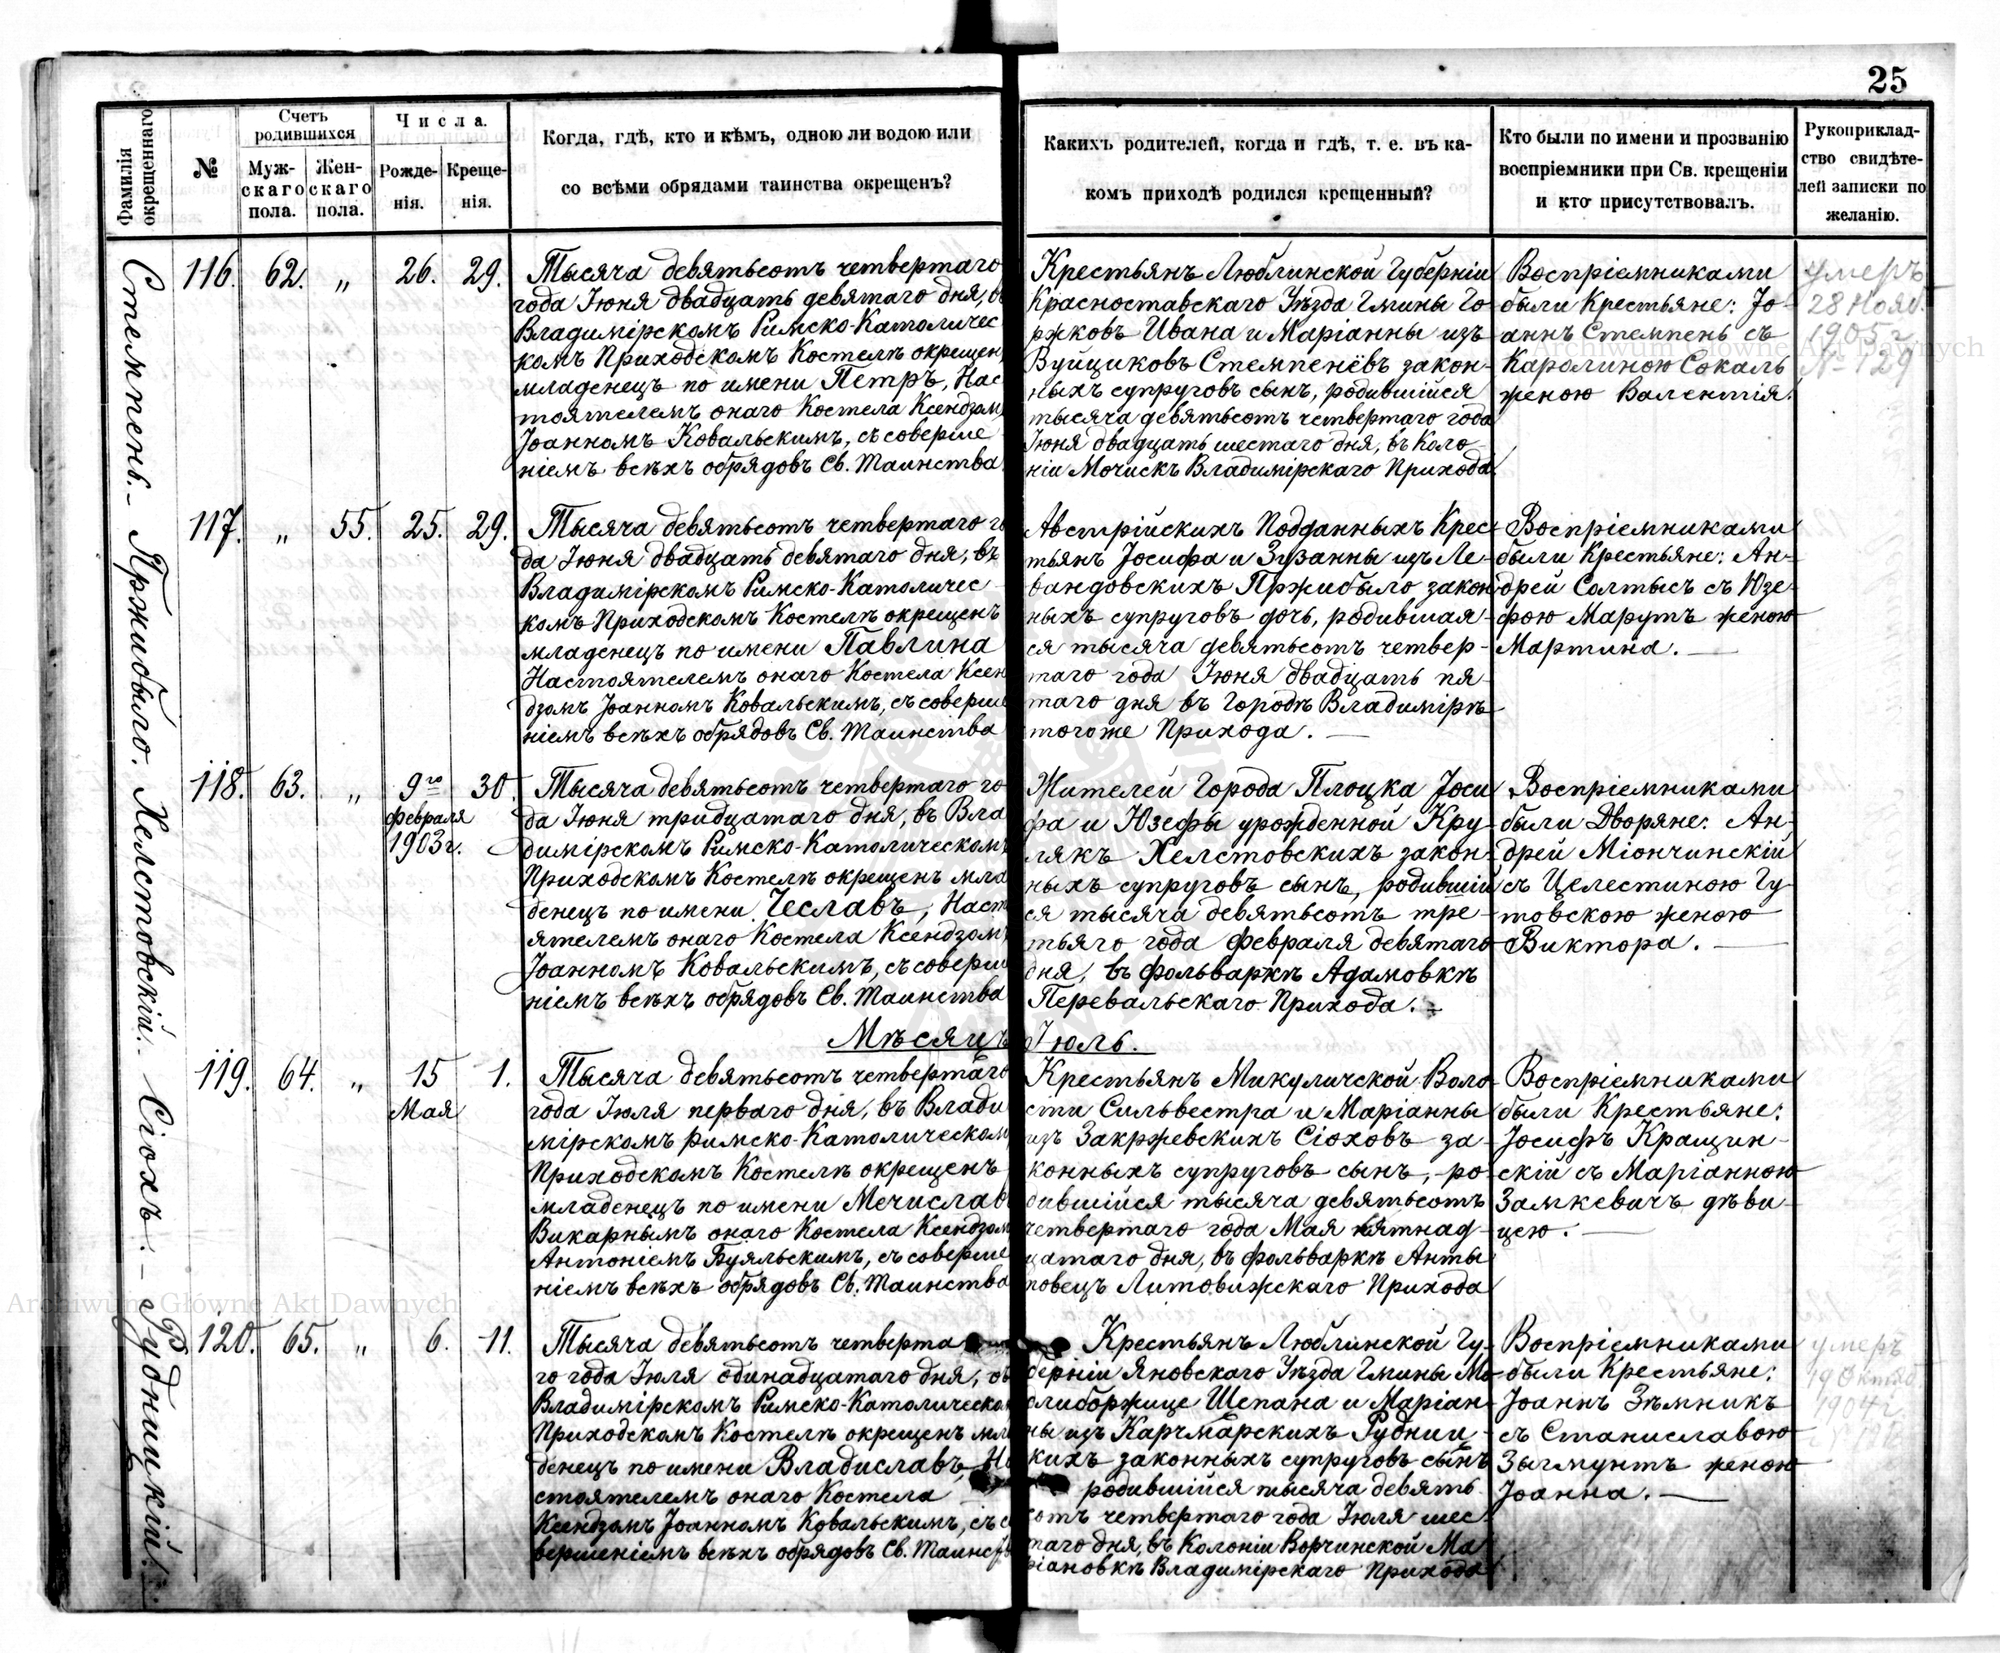 25
Фамилія окрещеннаго.
№
Счетъ родившихся
Мужскаго пола.
Женскаго пола.
Числа.
Рожденія.
Крещенія.
Когда, гдѣ, кто и кѣмъ, одною ли водою или
со всѣми обрядами таинства окрещенъ?
Какихъ родителей, когда и гдѣ, т. е. въ ка-
комъ приходѣ родился крещенный?
Кто были по имени и прозванію
воспріемники при Св. крещеніи
и кто присутствовалъ.
Рукоприклад-
ство свидѣте-
лей записки по
желанію.
Стемпень.
116. 62. „ 26. 29.
Тысяча девятьсотъ четвертаго
года Іюня двадцать девятаго дня, въ
Владимірскомъ Римско-Католичес
комъ Приходскомъ Костелѣ окрещен
младенецъ по имени Петръ, Нас
тоятелемъ онаго Костела Ксендзом
Іоанномъ Ковальскимъ, съ соверше
ніемъ всѣхъ обрядовъ Св. Таинства
Крестьянъ Люблинской Губерніи
Красноставскаго Уѣзда Гмины Го-
ржковъ Ивана и Маріанны изъ
Вуйциковъ Стемпенёвъ закон-
ныхъ супруговъ сынъ, родившійся
тысяча девятьсотъ четвертаго года
Іюня двадцать шестаго дня, въ Коло-
ніи Мочискъ Владимірскаго Прихода
Воспріемниками
были Крестьяне: Іо-
аннъ Стемпень съ
Каролиною Сокаль
женою Валентія.
умеръ
28 Нояб.
1905 г.
№ 129
Пржибыло.
117. „ 55. 25. 29.
Тысяча девятьсотъ четвертаго го
да Іюня двадцать девятаго дня, въ
Владимірскомъ Римско-Католичес
комъ Приходскомъ Костелѣ окрещенъ
младенецъ по имени Павлина
Настоятелемъ онаго Костела Ксен
дзомъ Іоанномъ Ковальскимъ, съ соверше
ніемъ всѣхъ обрядовъ Св. Таинства
Австрійскихъ Подданныхъ Крес-
тьянъ Іосифа и Зузанны изъ Ле-
вандовскихъ Пржибыло закон
ныхъ супруговъ дочь, родившая-
ся тысяча девятьсотъ четвер-
таго года Іюня двадцать пя-
таго дня въ Городѣ Владимірѣ
тогоже Прихода.
Воспріемниками
были Крестьяне: Ан-
дрей Солтысъ съ Юзе-
фою Марутъ женою
Мартина.
Хелстовскій.
118. 63. „ 9го Февраля 1903 г. 30.
Тысяча девятьсотъ четвертаго го
да Іюня тридцатаго дня, въ Вла
димірскомъ Римско-Католическомъ
Приходскомъ Костелѣ окрещенъ мла
денецъ по имени Чеславъ, Наст
ятелемъ онаго Костела Ксендзомъ
Іоанномъ Ковальскимъ, съ соверше
ніемъ всѣхъ обрядовъ Св. Таинства
Жителей Города Плоцка Іоси
фа и Юзефы урожденной Кру-
лякъ Хелстовскихъ закон-
ныхъ супруговъ сынъ, родившій
ся тысяча девятьсотъ тре-
тьяго года Февраля девятаго
дня, въ фольваркѣ Адамовкѣ
Перевальскаго Прихода.
Воспріемниками
были Дворяне: Ан-
дрей Міончинскій
съ Целестиною Гу-
товскою женою
Виктора.
Мѣсяцъ Іюль.
Сіохъ.
119. 64. „ 15 Мая 1.
Тысяча девятьсотъ четвертаго
года Іюля перваго дня, въ Влади
мірскомъ Римско-Католическом
Приходскомъ Костелѣ окрещенъ
младенецъ по имени Мечиславъ
Викарнымъ онаго Костела Ксендзом
Антоніемъ Буяльскимъ, съ соверше
ніемъ всѣхъ обрядовъ Св. Таинства
Крестьянъ Микуличской Воло-
сти Сильвестра и Маріанны
изъ Закржевскихъ Сіоховъ за-
конныхъ супруговъ сынъ, ро-
дившійся тысяча девятьсотъ
четвертаго года Мая пятнад-
цатаго дня, въ фольваркѣ Анты
новецъ Литовижскаго Прихода
Воспріемниками
были Крестьяне:
Іосифъ Кращин-
скій съ Маріанною
Замкевичъ дѣви-
цею.
Рудницкій.
120. 65. „ 6. 11.
Тысяча девятьсотъ четверта
го года Іюля одинадцатаго дня, въ
Владимірскомъ Римско-Католическом
Приходскомъ Костелѣ окрещенъ мла
денецъ по имени Владиславъ, На
стоятелемъ онаго Костела
Ксендзомъ Іоанномъ Ковальскимъ, съ со
вершеніемъ всѣхъ обрядовъ Св. Таинств
Крестьянъ Люблинской Гу-
берніи Яновскаго Уѣзда Гмины Мо-
длиборжице Щепана и Маріан-
ны изъ Карчмарскихъ Рудниц-
кихъ законныхъ супруговъ сынъ
родившійся тысяча девять-
сотъ четвертаго года Іюля шес-
таго дня, въ Колоніи Ворчинской Ма-
ріановкѣ Владимірскаго Прихода
Воспріемниками
были Крестьяне:
Іоаннъ Зѣмникъ
съ Станиславою
Зыгмунтъ женою
Іоанна.
умеръ
19 Октяб
1904 г.
Archiwum Główne Akt Dawnych
Archiwum Główne Akt Dawnych